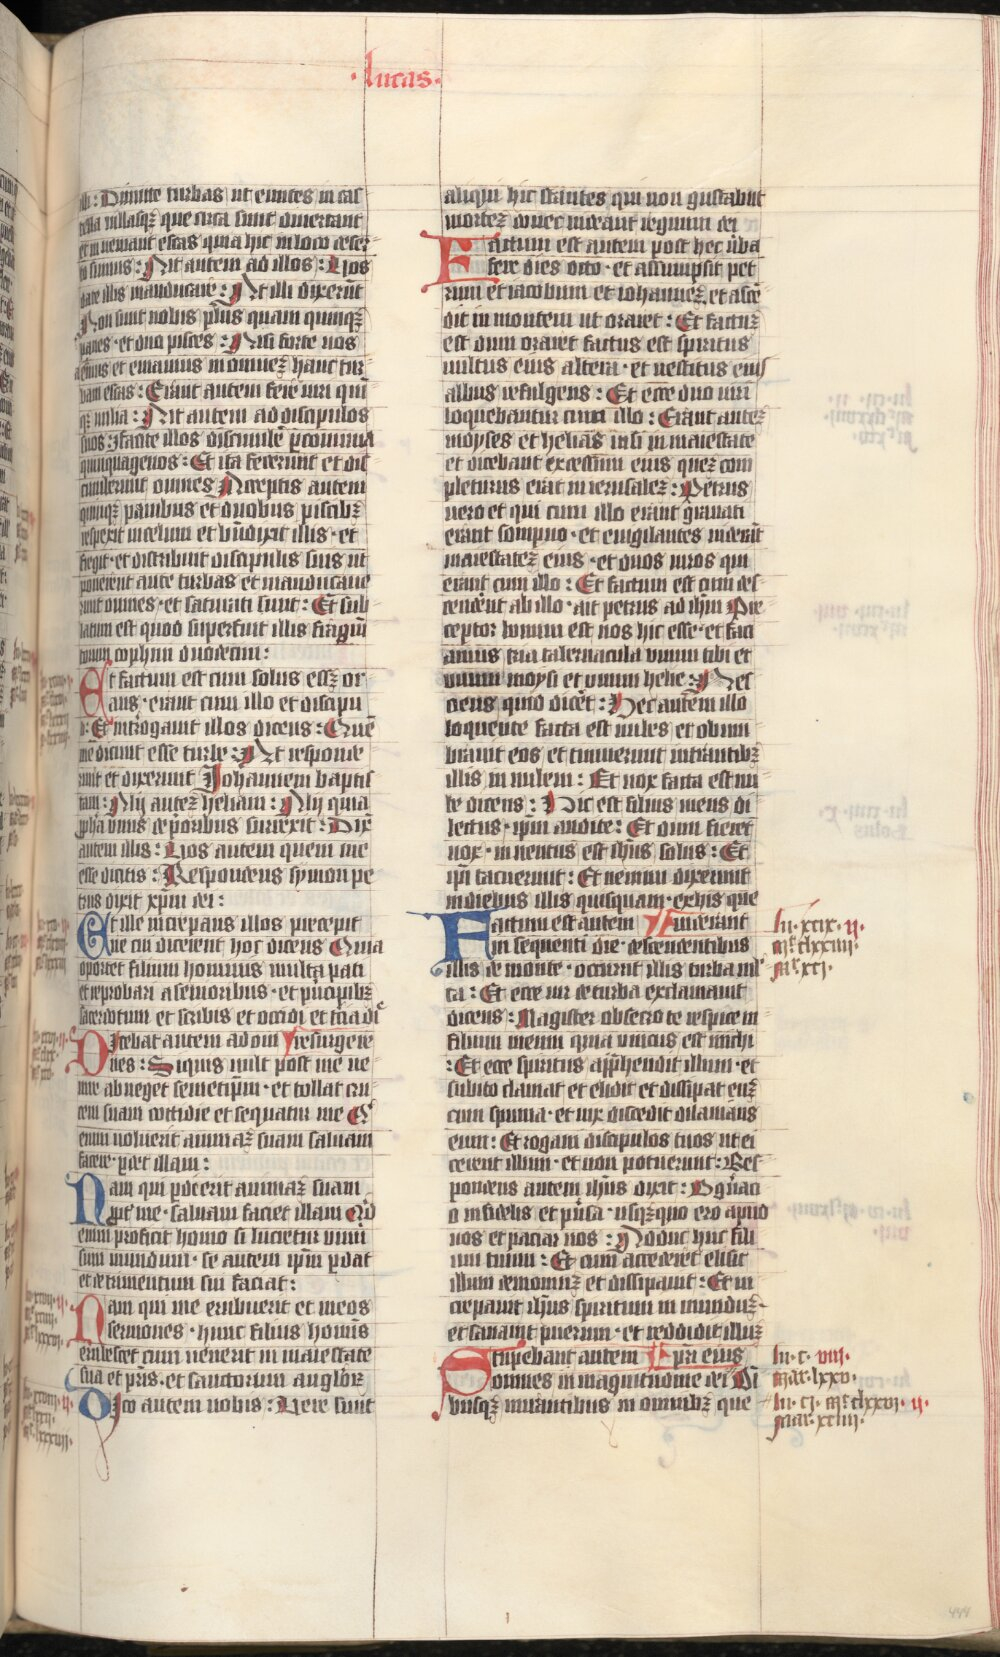 ·lucas·
illi : Dimitte turbas ut euntes in cas
tella uillasqꝫ que circa sunt diuertant
et inueniant escas quia hic in loco deser
to sumus : Ait autem ad illos : Uos
date illis manducare : At illi dixerūt
Non sunt nobis plus quam quinqꝫ
panes · et duo pisces : Nisi forte nos
eamus et emamus in omneꝫ hanc tur
bam escas : Erant autem fere uiri quī
qꝫ milia : Ait autem ad discipulos
suos : facite illos discumbe ꝑ conuiuia
quinquagenos : Et ita fecerunt et dis
cumbere omnes Acceptis autem
quinqꝫ panibus et duobus piscibꝫ
respexit in celum et bn̄dixit illis · et
fregit · et distribuit discipulis suis ut
ponerent ante turbas et manducaue
runt omnes · et saturati sunt : Et sub
latum est quod superfuit illis fragm̄
torum cophini duodecim :
Et factum est cum solus esseꝫ or
ans · erant cum illo et discipu
li : Et int̄rogauit illos dicens : Quē
me dicunt esse turbe : At responde
runt et dixerunt Johannem baptis
tam : Alij auteꝫ heliam : Alij quia
ꝓpha unus de prioribus surrexit : Dix̄
autem illis : Uos autem quem me
esse dicitis : Respondens symon pe
trus dixit xp̄m dei :
At ille increpans illos precepit
ne cui dicerent hoc dicens Quia
oportet filium hominis multa pati
et reprobari a senioribus · et principibꝫ
sacerdotum et scribis et occidi et tercia die
Dicebat autem ad om resurgere
nes : Siquis uult post me ue
nire abneget semetip̄m · et tollat cru
cem suam cottidie et sequatur me Q
enim uoluerit animaꝫ suam saluam
facere · ꝑdet illam :
Nam qui ꝑdiderit animaꝫ suam
ꝓpt̄ me · saluam faciet illam Quid
enim proficit homo si lucretur uniu
sum mundum · se autem ip̄m ꝑdat
et detrimentum sui faciat :
Nam qui me erubuerit et meos
sermones · hunc filius hominis
erubescet cum uenerit in maiestate
sua et pr̄is · et sanctorum angloꝝ
Dico autem uobis : Uere sunt
aliqui hic stantes qui non gustabūt
morteꝫ donec uideant regnum dei
Factum est autem post hec u̇ba
fere dies octo · et assumpsit pet
rum et iacobum et iohanneꝫ · et ascē
dit in montem ut oraret : Et factuꝫ
est dum oraret factus est spiritus
uultus eius altera · et uestitus eius
albus refulgens : Et ecce duo uiri
loquebantur cum illo : Erant auteꝫ
moyses et helias uisi in maiestate
et dicebant excessum eius queꝫ com
pleturus erat in ierusaleꝫ : Petrus
uero et qui cum illo erant grauati
erant sompno · et euigilantes uiderūt
maiestateꝫ eius · et duos uiros qui
erant cum illo : Et factum est cum dis
cederent ab illo · ait petrus ad ihm̄ Pre
ceptor bonum est nos hic esse · et faci
amus tria tabernacula unum tibi et
unum moysi et unum helie : Nes
ciens quid dicet : Hec autem illo
loquente facta est nubes et obum
brauit eos et timuerunt intrantibꝫ
illis in nubem : Et uox facta est nu
be dicens : Hic est filius meus di
lectus · ip̄m audite : Et dum fieret
uox · inuentus est ihus solus : Et
ip̄i tacuerunt : Et nemini dixerunt
in diebus illis quisquam · ex his que
Factum est autem uiderant
in sequenti die · descendentibus
illis de monte · occurrit illis turba ml
ta : Et ecce uir de turba exclamauit
dicens : Magister obsecro te respice in
filium meum quia unicus est michi
: Et ecce spiritus app̄hendit illum · et
subito clamat et elidit et dissipat euꝫ
cum spuma · et uix discedit dilanians
eum : Et rogaui discipulos tuos ut ei
cerent illum · et non potuerunt : Res
pondens autem ihus dixit : O gn̄aci
o infidelis et ꝑuersa · usqꝫquo ero apud
uos et paciar uos : Adduc huc fili
um tuum : Et cum accederet elisit
illum demoniuꝫ et dissipauit : Et in
crepauit ihus spiritum in munduꝫ ·
et sanauit puerum · et reddidit illuꝫ
Stupebant autem patri eius
omnes in magnitudine dei Om̄
busqꝫ mirantibus in omnibꝫ que
lu · xcix · ii ·
mr̄ clxxiiii ·
mr̄ xci ·
lu · c · viii ·
mar · lxxv ·
lu · ci · mt̄ clxxvi · ii ·
mar · xciii ·
444